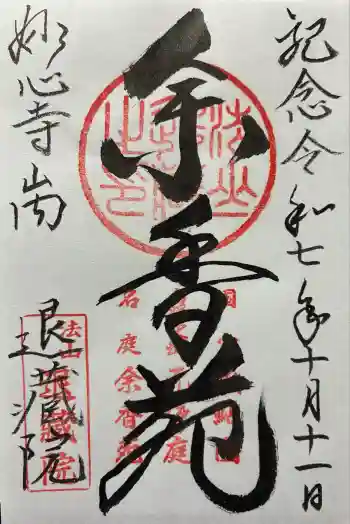 記念令和七年十月十一日
余香苑
妙心寺山内
退蔵院
法山
退蔵院
名庭余香苑